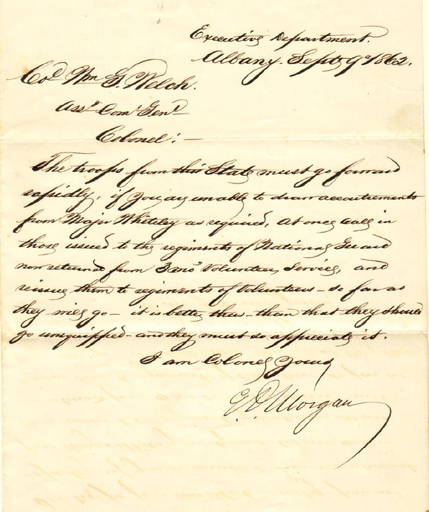 Executive Department.
Albany, Sept. 9th 1862.
Col. Wm. G. Welch.
Asst. Com. Genl.
Colonel:—
The troops from this State must go forward
rapidly, if you are unable to draw accoutrements
from Major Whiteley as required, at once call in
those issued to the regiments of National Guard
now returned from Volunteer service, and
reissue them to regiments of Volunteers — so far as
they will go — it is better thus — than that they should
go unequipped — and they must so appreciate it.
I am Colonel Yours
E. D. Morgan